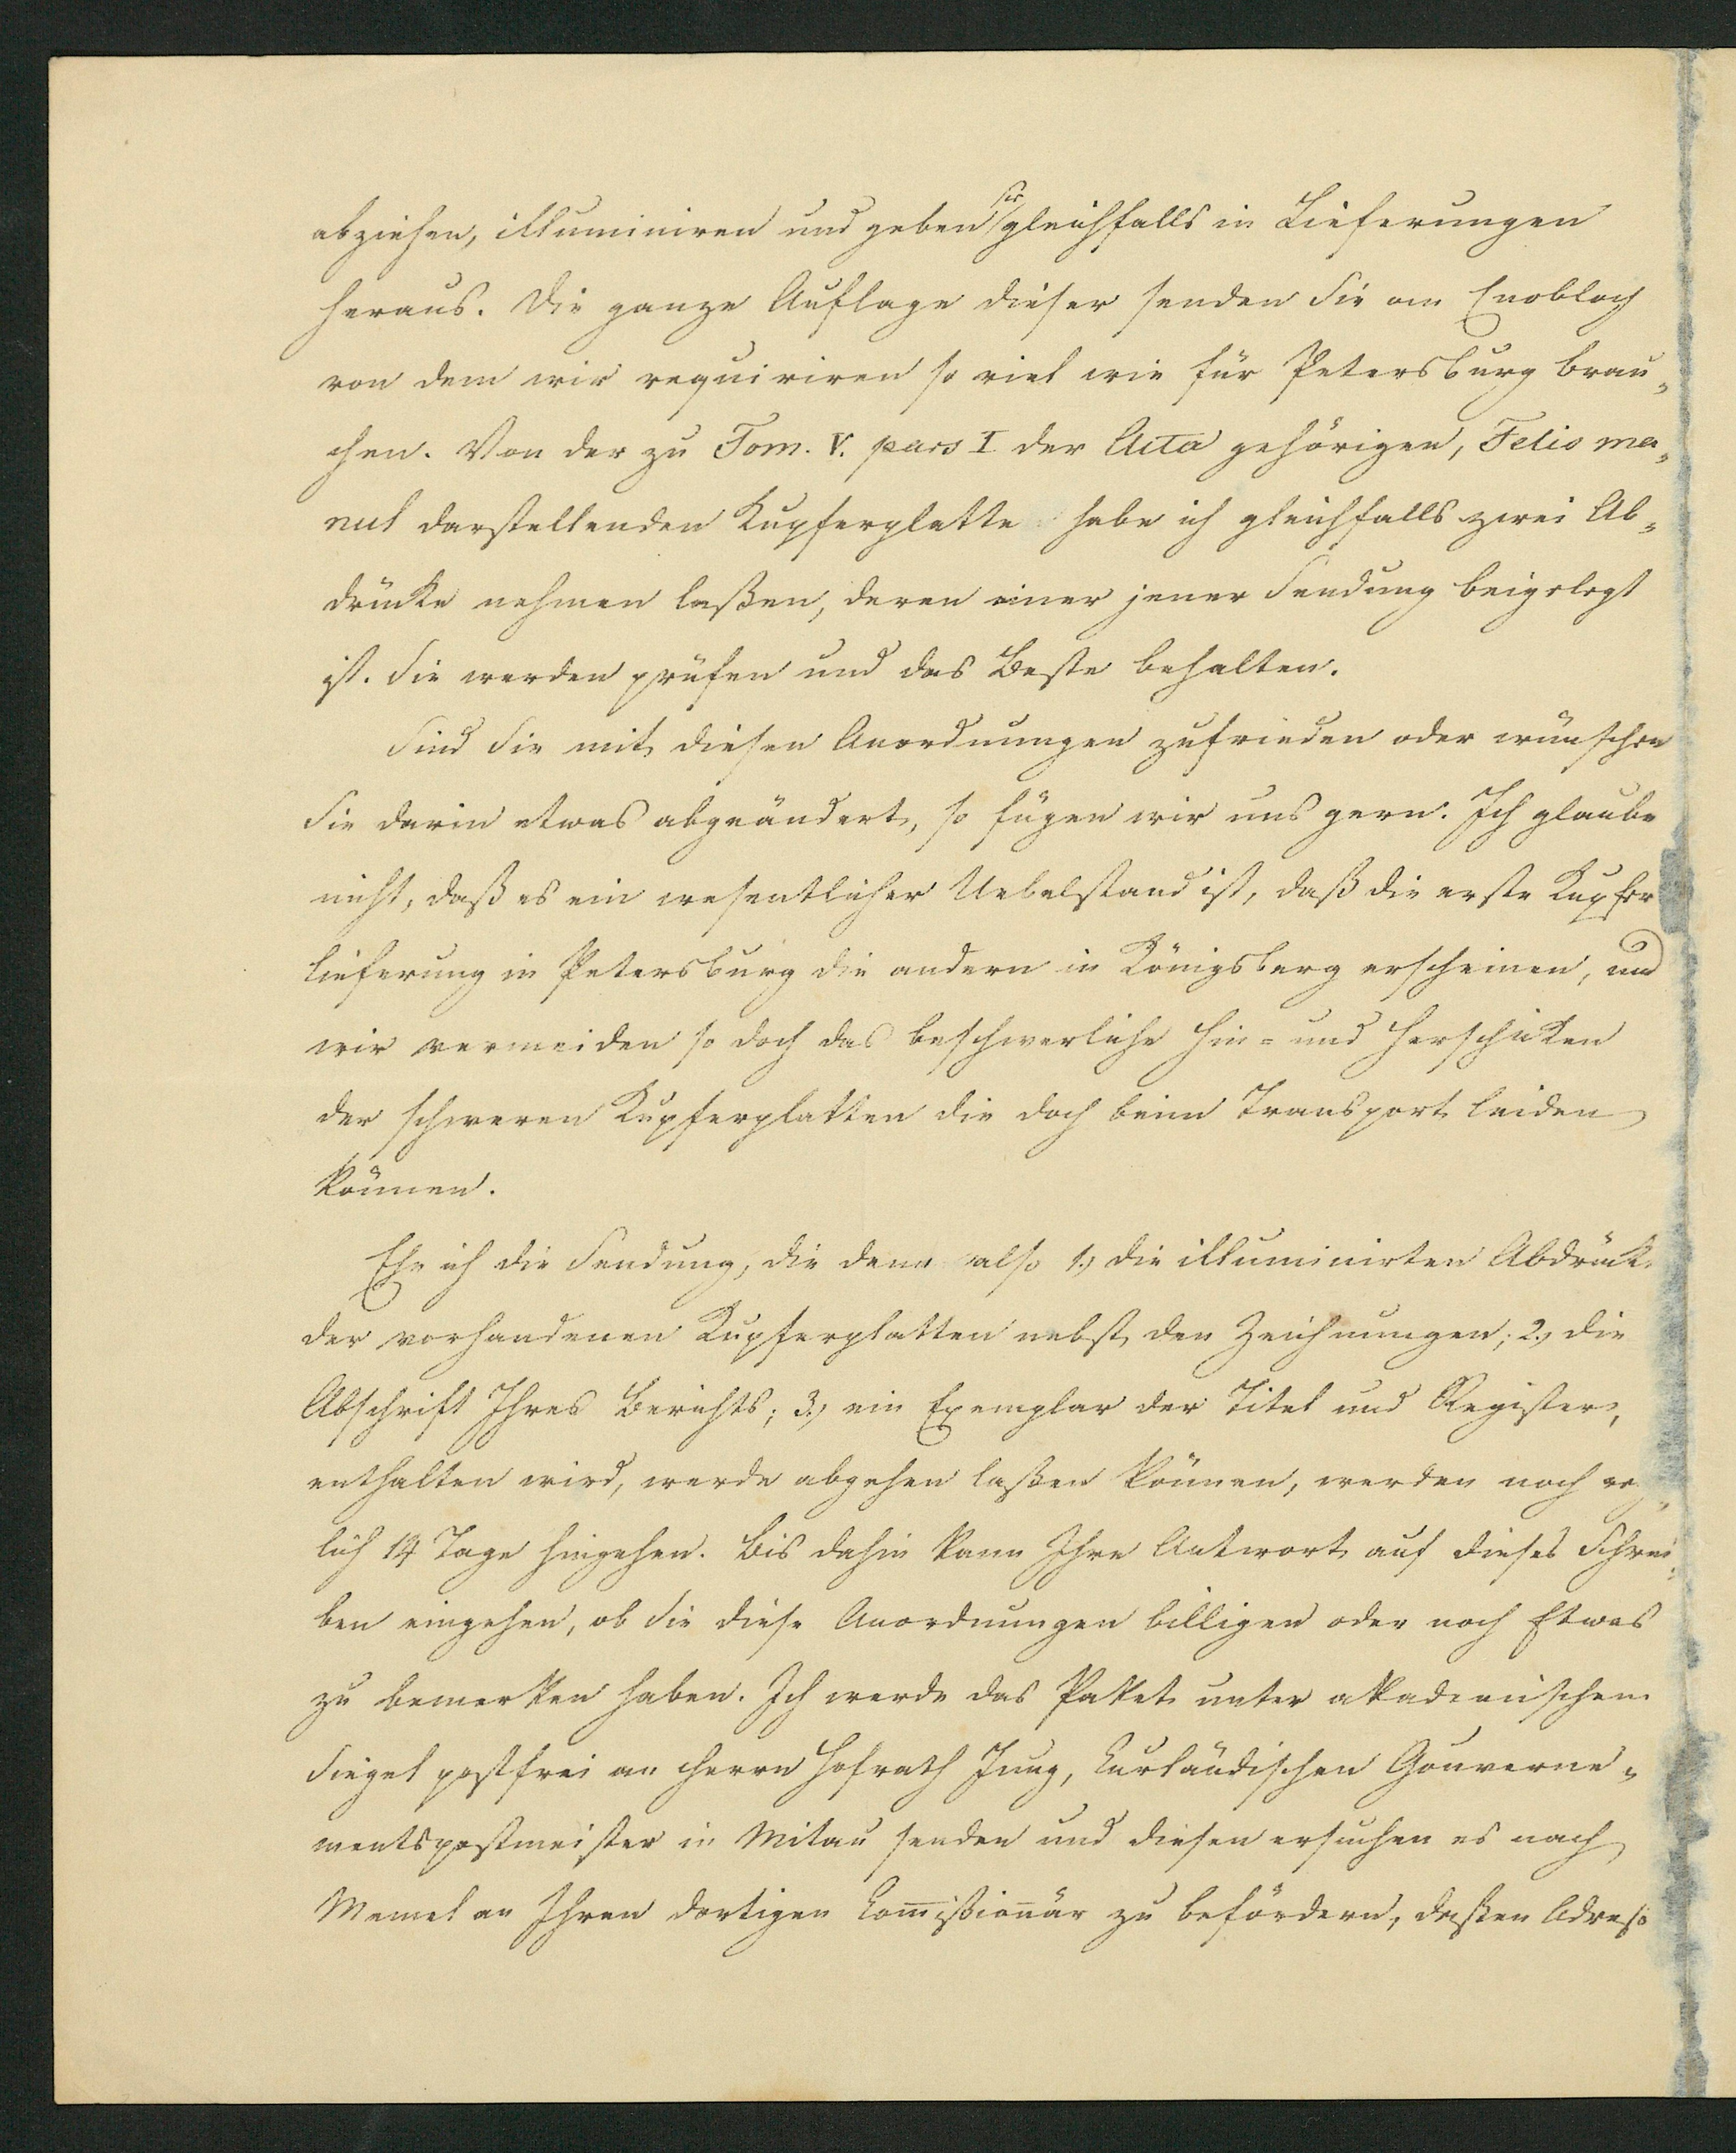 abziehen, illuminiren und geben sie gleichfalls in Lieferungen
heraus. Die ganze Auflage dieser senden Sie an Cnobloch
von dem wir requiriren so viel wir für Petersburg brau-
chen. Von der zu Tom. V. pars I der Acta gehörigen, Felis ma-
nul darstellenden Kupferplatte habe ich gleichfalls zwei Ab-
drücke nehmen laßen, deren einer jener Sendung beigelegt
ist. Sie werden prüfen und das Beste behalten.
Sind Sie mit diesen Anordnungen zufrieden oder wünschen
Sie darin etwas abgeändert, so fügen wir uns gern. Ich glaube
nicht, daß es ein wesentlicher Uebelstand ist, daß die erste Kupfer
lieferung in Petersburg die andern in Königsberg erscheinen, und
wir vermeiden so doch das beschwerliche Hin- und Herschicken
der schweren Kupferplatten die doch beim Transport leiden
können.
Ehe ich die Sendung, die denn also 1.) die illuminirten Abdrücke
der vorhandenen Kupferplatten nebst den Zeichnungen; 2.) die
Abschrift Ihres Berichts; 3.) ein Exemplar der Titel und Register,
enthalten wird, werde abgehen laßen können, werden noch
lich 14 Tage hingehen. Bis dahin kann Ihre Antwort auf dieses Schrei-
ben eingehen, ob Sie diese Anordnungen billigen oder noch Etwas
zu bemerken haben. Ich werde das Paket unter akademischem
Siegel postfrei an Herrn Hofrath Jung, Curländischen Gouverne-
mentspostmeister in Mitau senden und diesen ersuchen es nach
Memel an Ihren dortigen Com̅ißion̅är zu befördern, deßen Adreße